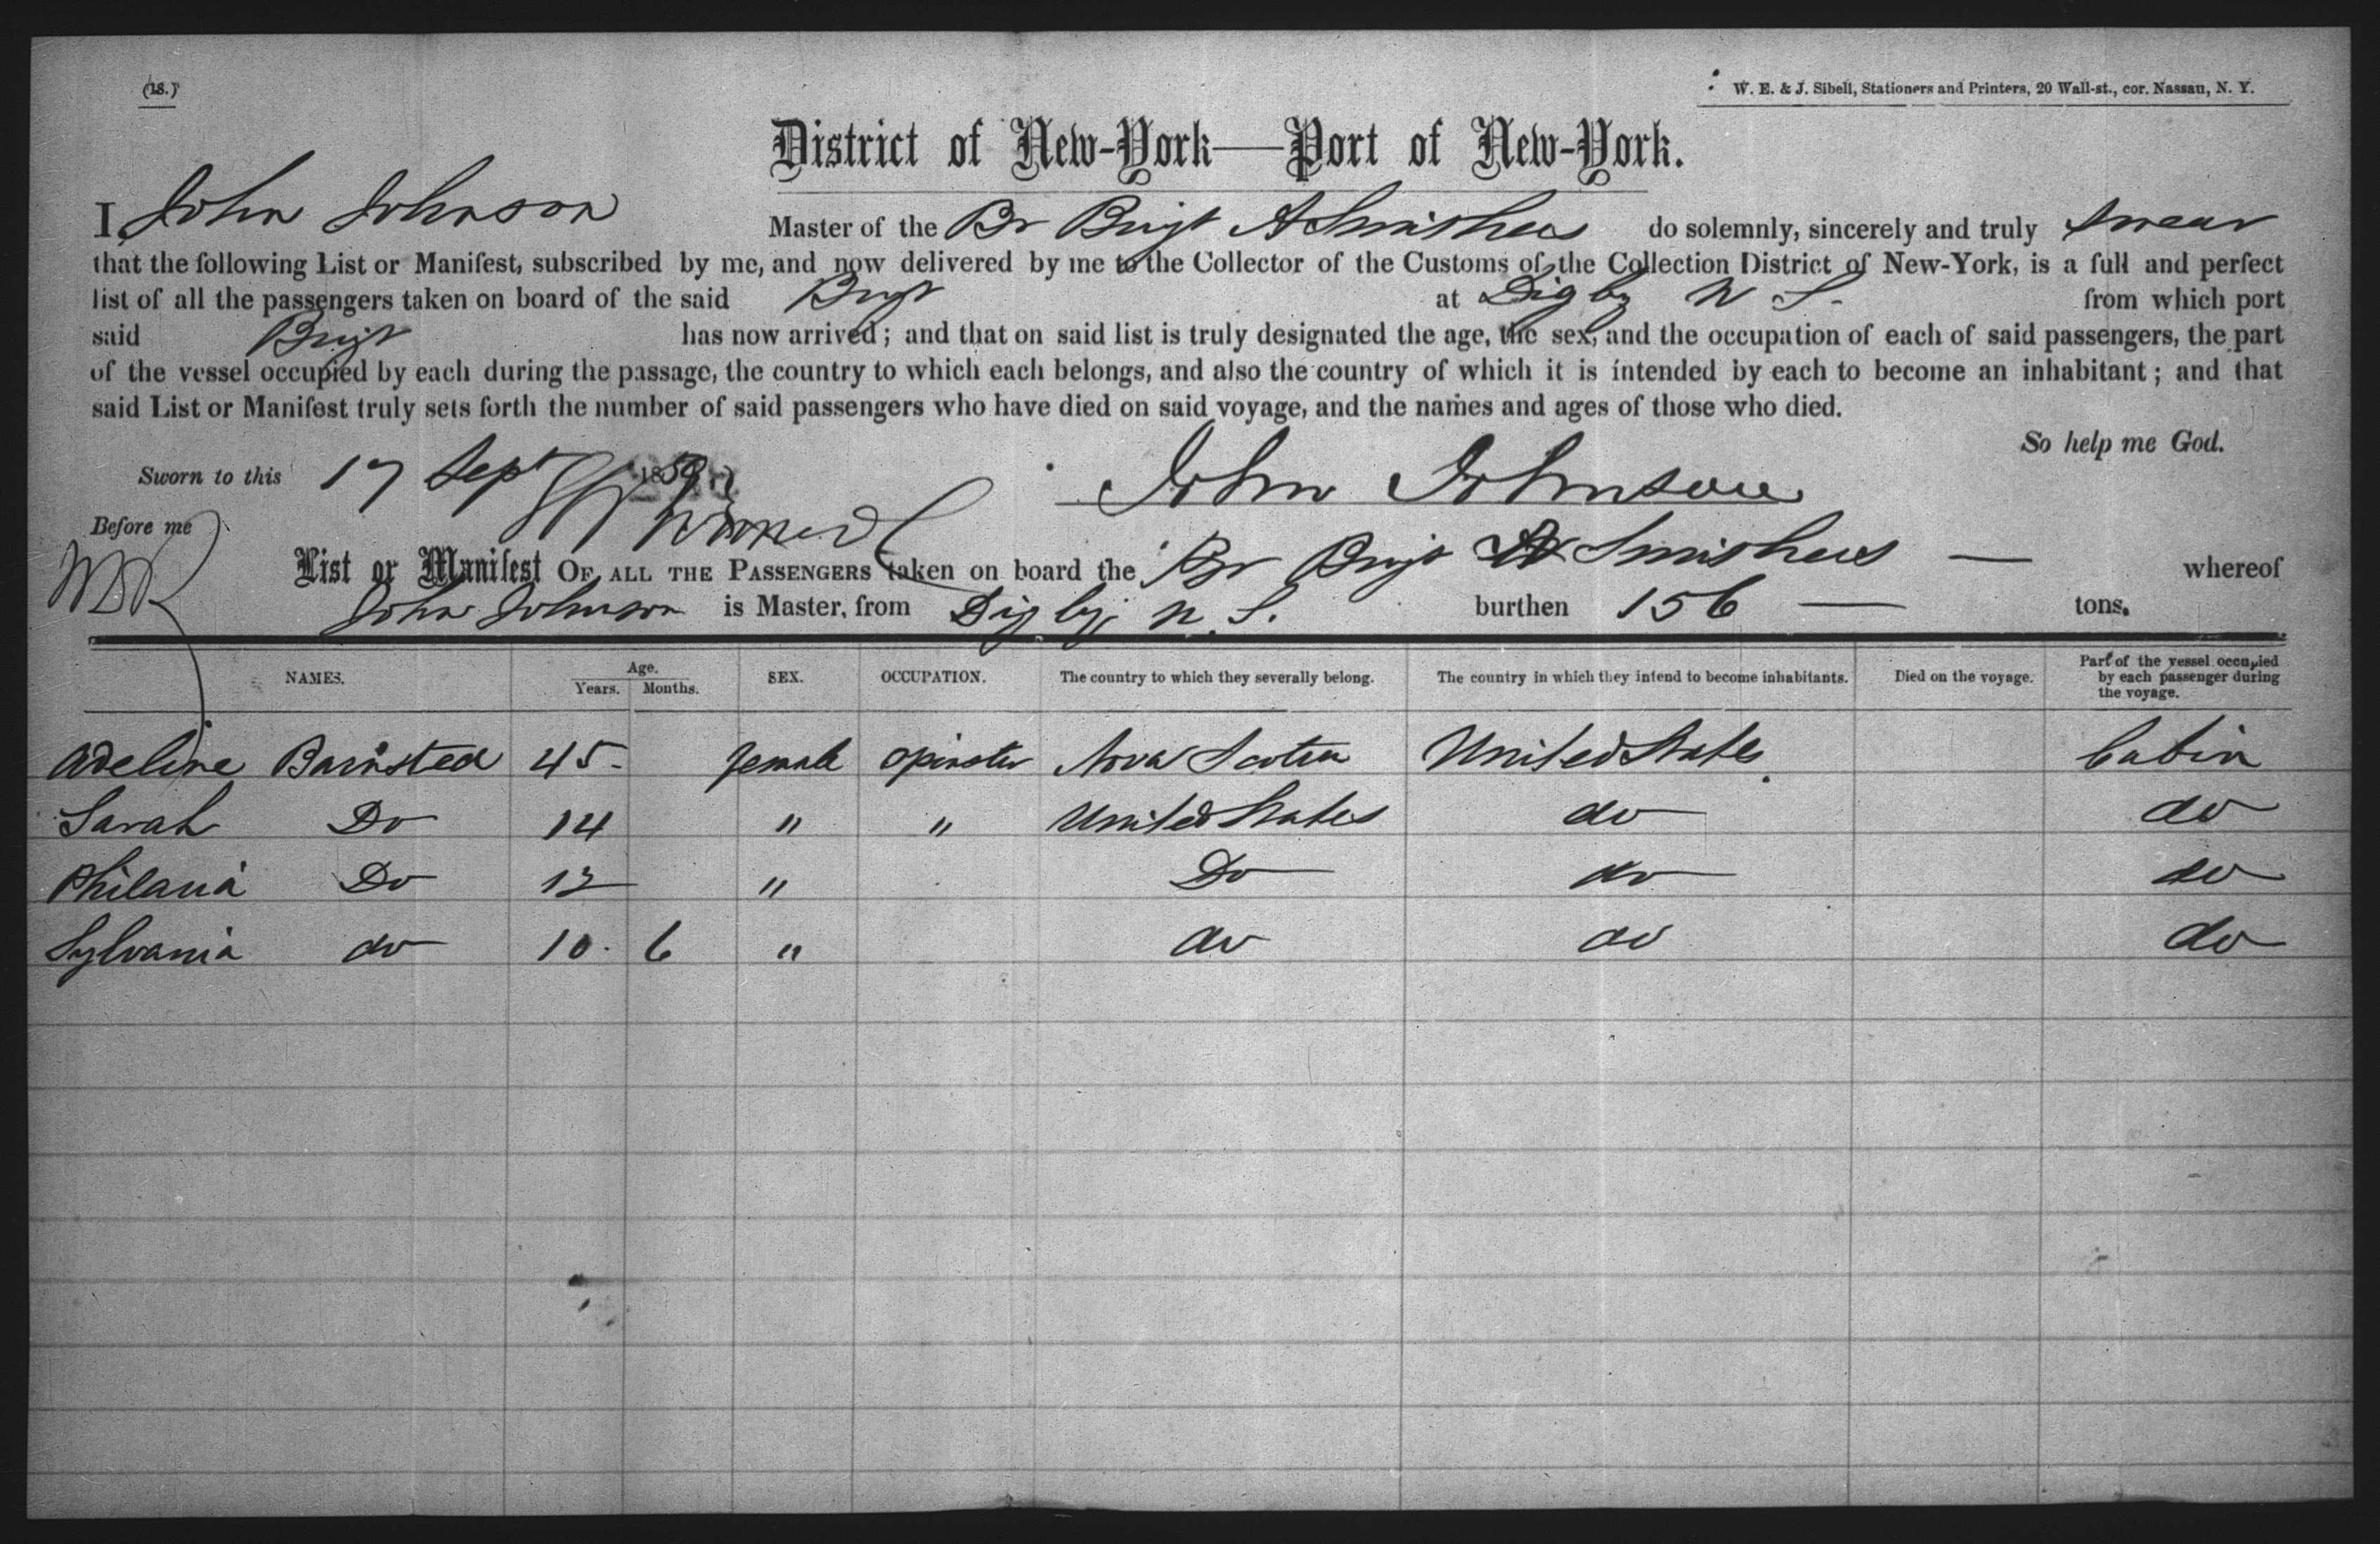 (18.)
W. E. & J. Sibell, Stationers and Printers, 20 Wall-st., cor. Nassau, N. Y.
District of New-York—Port of New-York.
I, John Johnson Master of the Br Brigt A Smithers do solemnly, sincerely and truly swear
that the following List or Manifest, subscribed by me, and now delivered by me to the Collector of the Customs of the Collection District of New-York, is a full and perfect
list of all the passengers taken on board of the said Brigt at Digby N S. from which port
said Brigt has now arrived; and that on said list is truly designated the age, the sex, and the occupation of each of said passengers, the part
of the vessel occupied by each during the passage, the country to which each belongs, and also the country of which it is intended by each to become an inhabitant; and that
said List or Manifest truly sets forth the number of said passengers who have died on said voyage, and the names and ages of those who died.
So help me God.
Sworn to this 17 Sept 1859 John Johnson
Before me
List or Manifest OF ALL THE PASSENGERS taken on board the Br Brigt A Smithers — whereof
John Johnson is Master, from Digby, N. S. burthen 156 — tons.
NAMES. Age. Years. Months. SEX. OCCUPATION. The country to which they severally belong. The country in which they intend to become inhabitants. Died on the voyage. Part of the vessel occupied by each passenger during the voyage.
Adeline 45 female spinster Nova Scotia United States Cabin
Sarah Do 14 " " United States do do
Philana Do 12 " Do do do
Sylvania do 10 6 " do do do